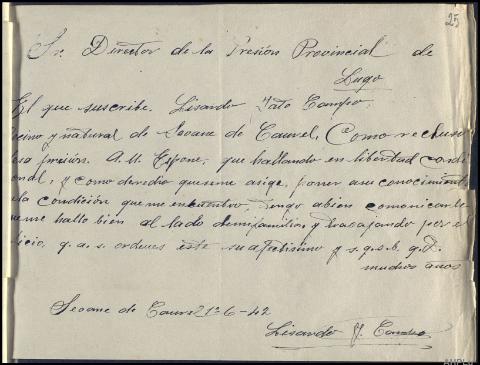 25
Sr. Director de la Presión Provincial de
Lugo
El que suscribe. Lisardo Tato Campo,
ecino y natural de Seoane de Caurel, Como reclu
esa presion. A. U. Espone; que hallando en libertad condi
onal, y como derecho que se me asige, poner a su conocimient
la condición que me encuentro, Tengo abien comunicarle
me hallo bien al lado de mi familia y trabajando por el
icio, q. a. s. ordenes este su afectisimo y s. q. s. b. q. D.
muchos años
Seoane de Caurel 1º-6-42
Lisardo T. Campo